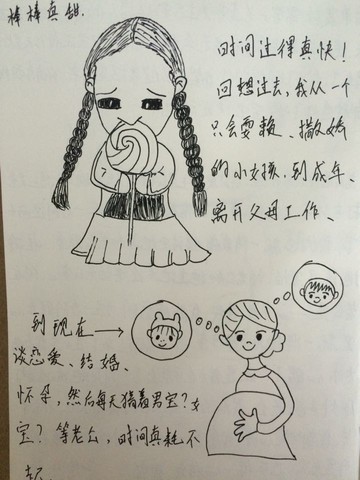 棒棒真甜.
时间过得真快！
回想过去，我从一个
只会耍赖、撒娇
的小女孩，到成年、
离开父母工作、
到现在→
谈恋爱、结婚、
怀孕，然后每天猜着男宝？女
宝？等老公，时间真耗不
起.